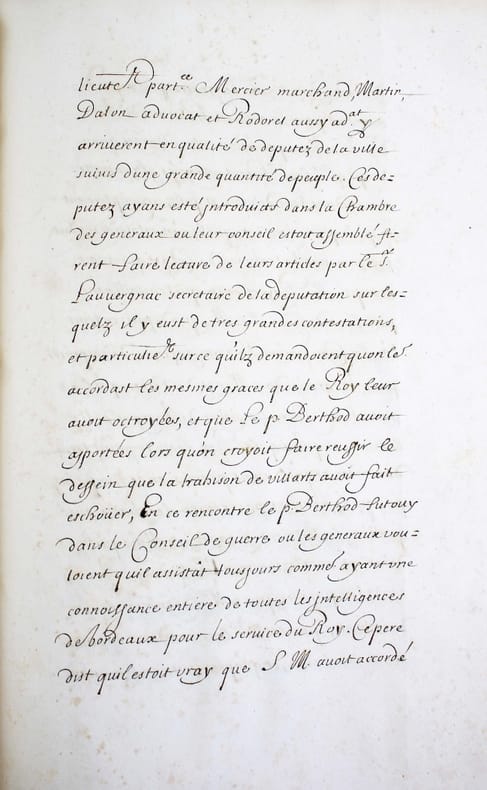 lieute.^nt part.^er Mercier marchand, Martin,
Dalon advocat et Rodorel aussy ad.^at y
arriverent en qualité de deputez de la ville
suivis dune grande quantité de peuple. Ces de-
putez ayans esté introduicts dans la Chambre
des generaux ou leur conseil estoit assemblé fi-
rent faire lecture de leurs articles par le S.^r
Lauvergnac secretaire de la deputation sur les-
quelz il y eust de tres grandes contestations,
et particulie.^rt sur ce qu'ilz demandoient quon les
accordast les mesmes graces que le Roy leur
avoit octroyées, et que Le p Berthod avoit
apportées lors quon croyoit faire reussir le
dessein que la trahison de villarts avoit fait
eschoüer, En ce rencontre le p. Berthod fut ouy
dans le Conseil de guerre ou les generaux vou-
loient quil assistât tousjours comme ayant une
connoissance entiere de toutes les jntelligences
de bordeaux pour le service du Roy. Ce pere
dist quil estoit vray que S. M. avoit accordé